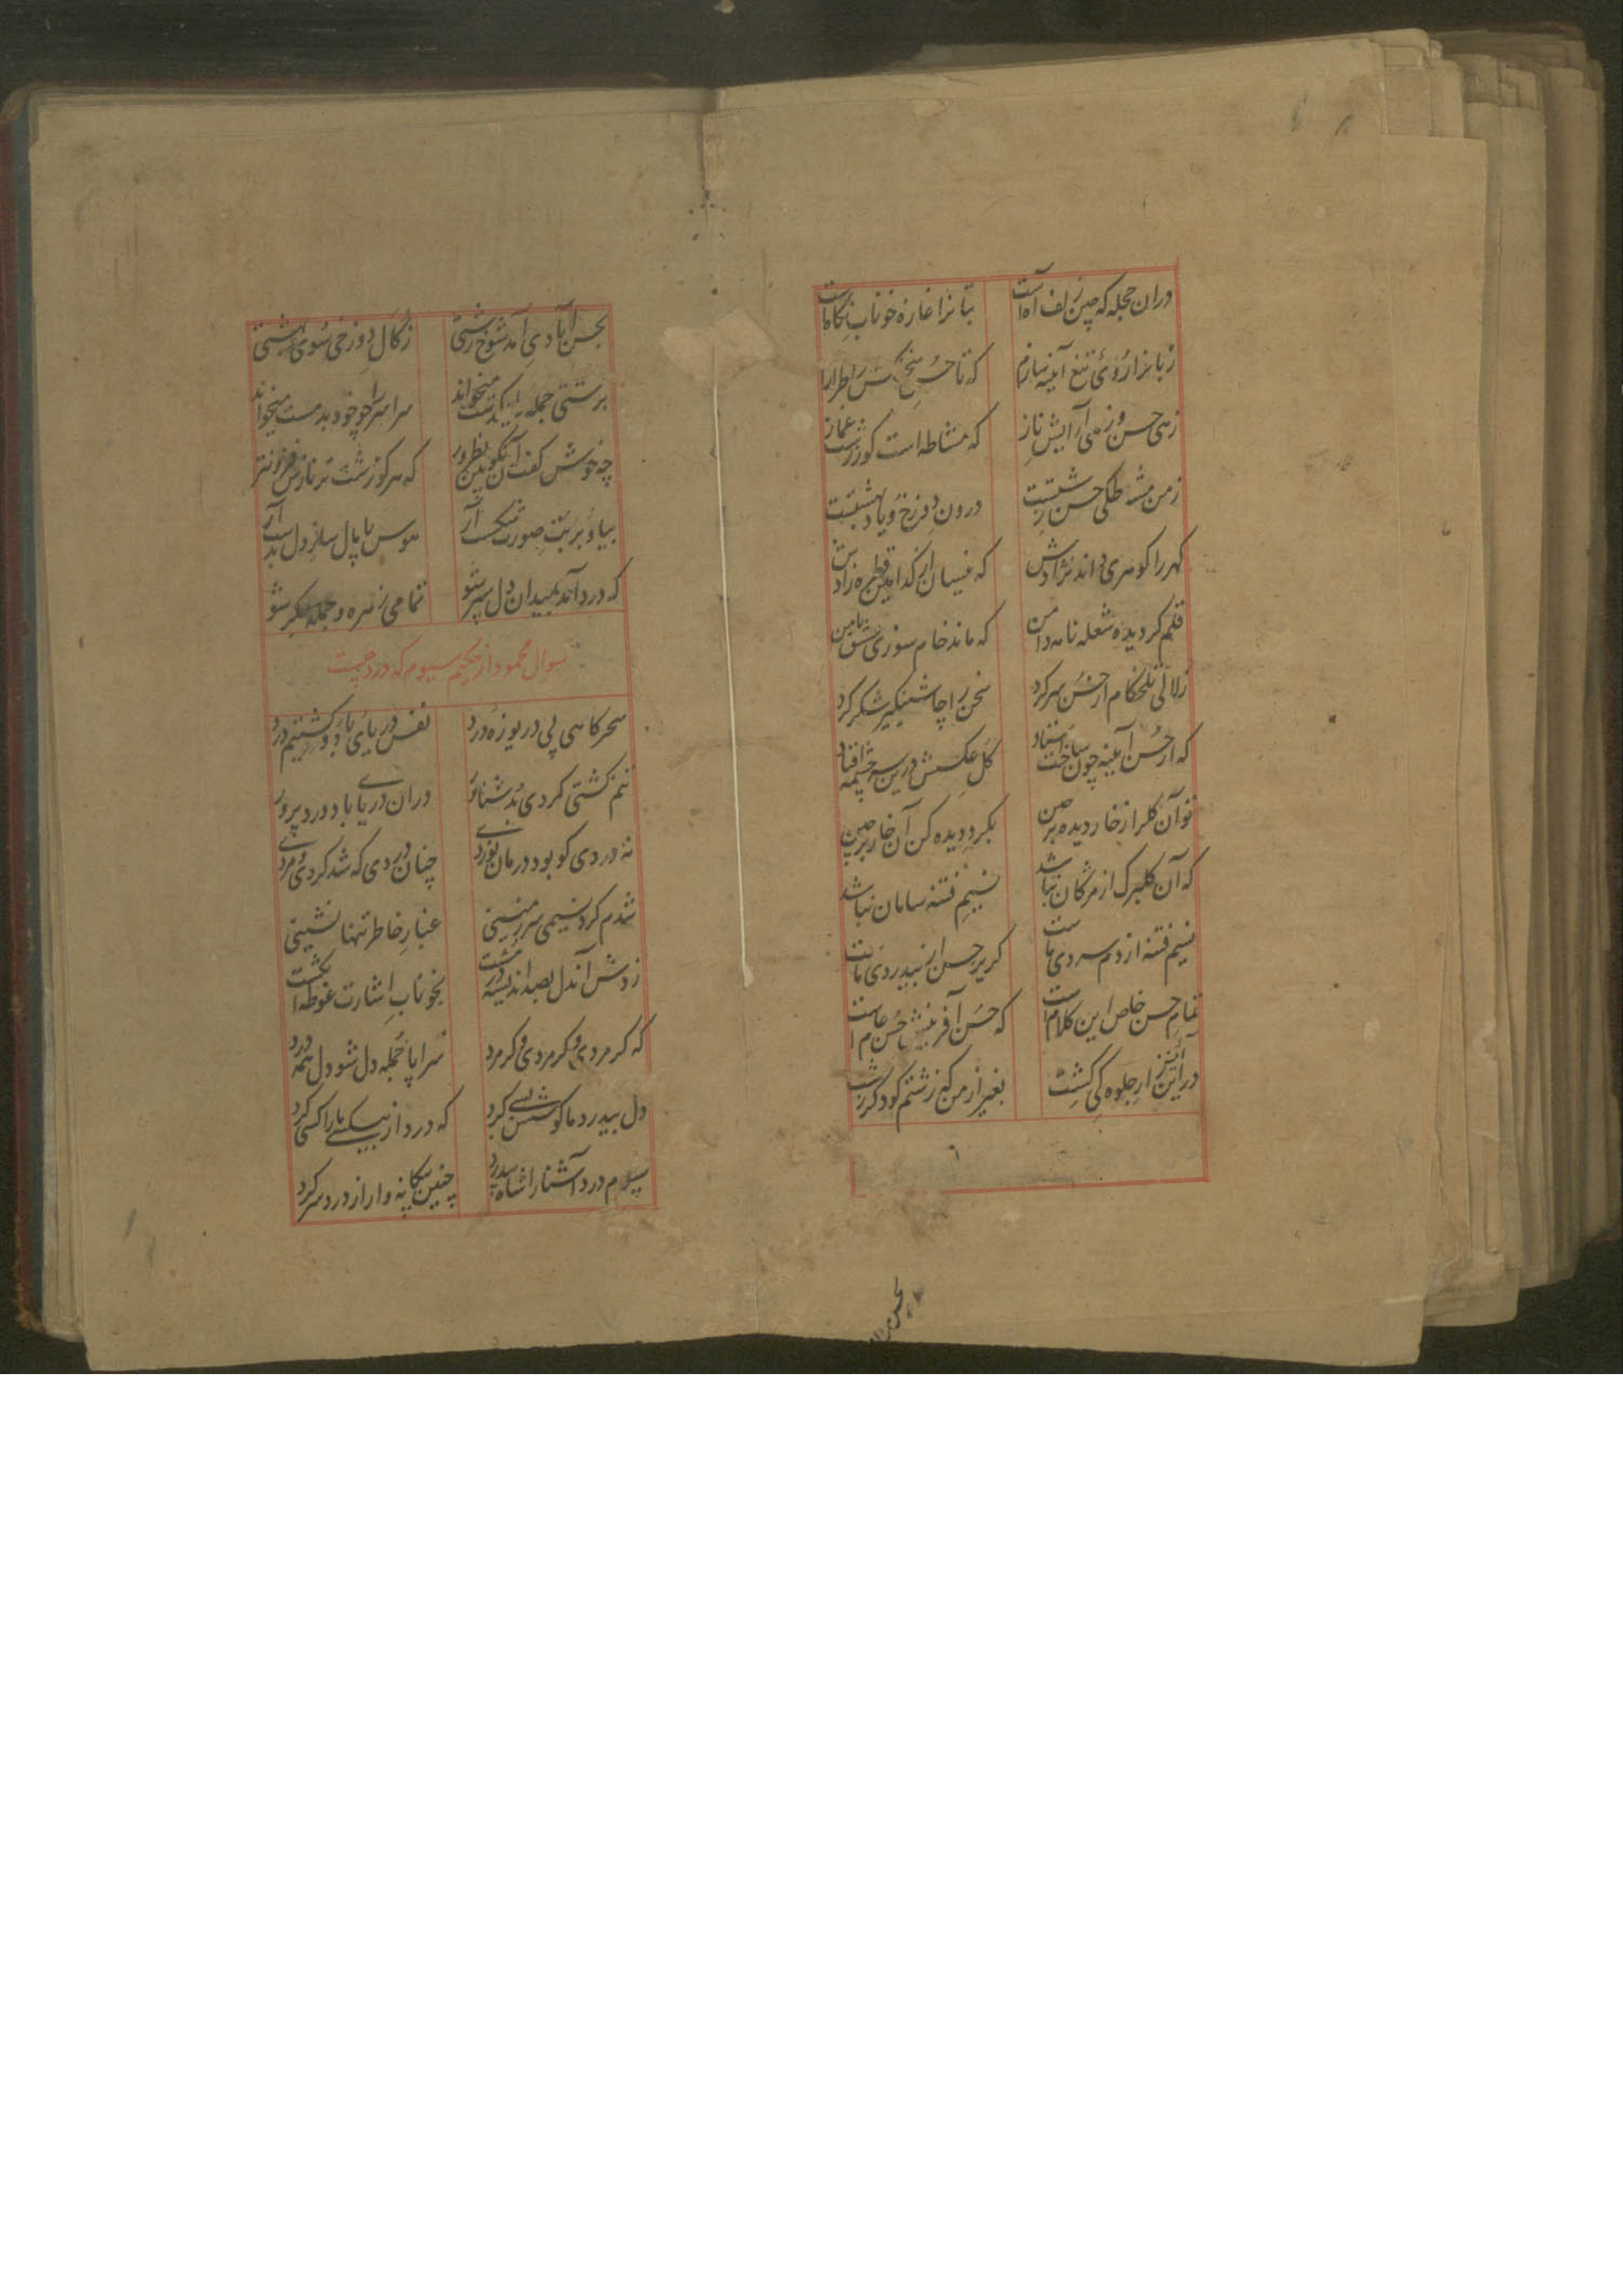 دران حجله که چین زلف آه است بتانرا غازه خوناب نگاه است
زبانرا روی تیغ آینه سازم که تا حسن سخن را طرازم
زهی حسن و زهی آرایش ناز که مشاطه است کورشت غماز
زمن مشاطگی حسن زشتست درون دوزخ و یاد بهشتست
گهر را گوهری داند نژادش که نیسان از کدامین قطره زادش
قلم گردیده شعله نامه دامن که ماند خام سوزی عشق با من
زلالی تلخکام از حسن سر کرد سخن را چاشنیگیر شکر کرد
که از حسن آینه چون ساخت استاد گل عکسش درین سرچشمه افتاد
تو آن گلرا ز خار دیده بر چین بگرد دیده کن آن خار پرچین
که آن گلبرگ از مژگان نباشد نسیم فتنه سامان نباشد
نسیم فتنه از دم سردی ماست گریز حسن از بیدردی ماست
تمام حسن خاص این کلام است که حسن آفرینش حسن عام است
در آیین ار جلوه کی کشت بغیر از من که زشتم کو دگر زشت
بحسن آباد دی آمد شوخ زشتی زگال دوزخی سوی بهشتی
پرستی جمله یکدست میخواند سراسر را چو خود بدمست میخواند
چه خوش گفت آن نکوبین نظرور که هر کو زشت تر نازش فزونتر
بیا و بر بت صورت شکست آر هوس پامال ساز دل بدست آر
که درد آمد بمیدان دل سپر شو تمامی زهره و جمله جگر شو
سوال محمود از حکیم سیوم که درد چیست
سحرگاهی پی دریوزه درد نفس دریای باد و کشتیم درد
تنم کشتی کردی بد شناور دران دریا باد درد پرور
نه دردی کو بود درمان نوردی چنان دردی که شد گردی و مردی
شدم گرد نسیمی سرزمینی غبار خاطر تنها نشینی
زدش آندل بصد اندیشه در مشت بخوناب اشارت غوطه انگشت
که گر مردی و گر مردی و گر مرد سراپا جمله دل شو دل همه درد
دل بیدرد ما کوشش بسی کرد که درد از بیکسی ما را کسی کرد
سیوم درد آشنا را شاه پرسید چنین بیگانه وار از درد سر کرد